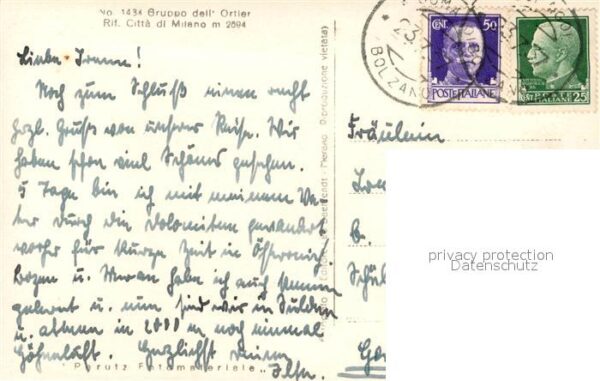 No. 1434 Gruppo dell' Ortler
Rif. Città di Milano m 2694
Liebe Irmm!
Noch zum Schluß einen recht
herzl. Gruß von unserer Reise. Wir
haben schon viel Schönes gesehen.
5 Tage bin ich mit meinem Va-
ter durch die Dolomiten gewandert
vorher für kurze Zeit in Österreich
Bozen u. Meran habe ich auch kennen
gelernt u. nun sind wir in Sulden
u. atmen in 2000 m noch einmal
Höhenluft. Herzlichst deine
Ilse.
"Perutz Fotomateriale"
Merano (Riproduzione vietata)
BOLZANO
23.7.
CENT. 50
POSTE ITALIANE
25
POSTE ITALIANE
Fräulein
b.
privacy protection
Datenschutz